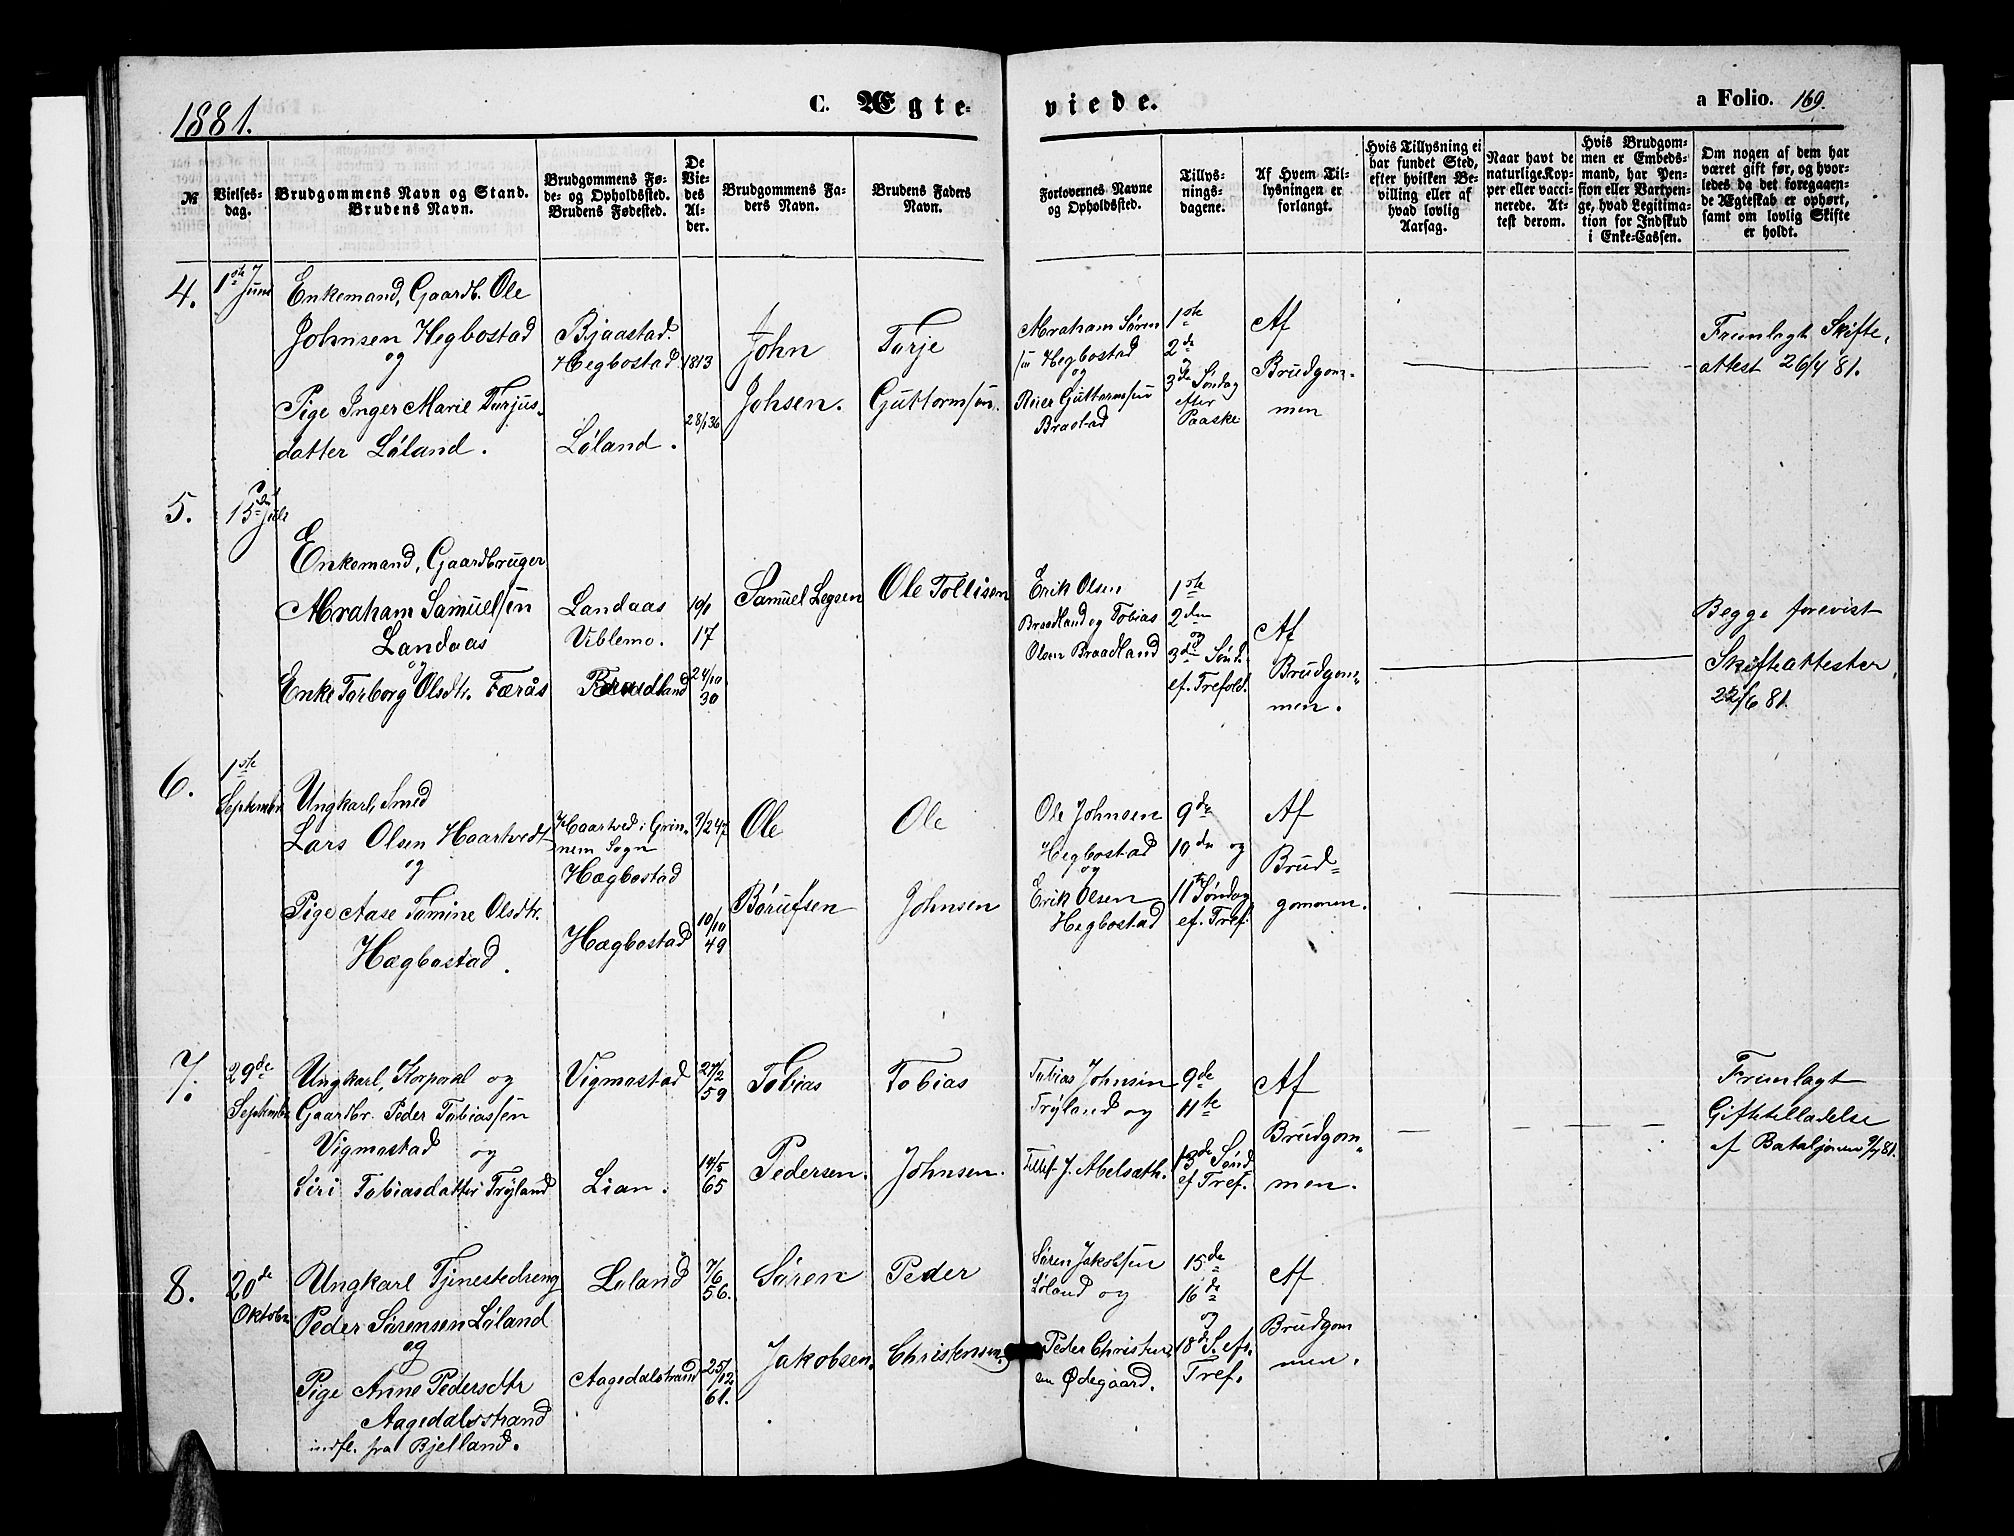 1881.
C. Ægte-
viede.
a Folio. 169.
№
Vielses-
dag.
Brudgommens Navn og Stand.
Brudens Navn.
Brudgommens Fø-
de- og Opholdssted.
Brudens Fødested.
De
Vie-
des
Al-
der.
Brudgommens Fa-
ders Navn.
Brudens Faders
Navn.
Forlovernes Navne
og Opholdssted.
Tillys-
nings-
dagene.
Af Hvem Til-
lysningen er
forlangt.
Hvis Tillysning ei
har fundet Sted,
efter hvilken Be-
villing eller af
hvad lovlig
Aarsag.
Naar havt de
naturlige Kop-
per eller vacci-
nerede. At-
test derom.
Hvis Brudgom-
men er Embeds-
mand, har Pen-
sion eller Vartpen-
ge, hvad Legitima-
tion for Indskud
i Enke-Cassen.
Om nogen af dem har
været gift før, og hvor-
ledes da det foregaaen-
de Ægteskab er ophørt,
samt om lovlig Skifte
er holdt.
4.
1ste Juni
Enkemand, Gaardb. Ole
Johnsen Hegbostad
og
Pige Inger Marie Torjus-
datter Løland.
Bjaastad.
Hegbostad
Løland.
1813
28/1 36
John
Johsen.
Torje
Guttormsen.
Abraham Søren
sen Hegbostad
og
Reier Guttormsen
Braastad
1ste
2de
og
3de Søndag
efter
Paaske
Af
Brudgom-
men
Fremlagt Skifte-
attest 26/4 81.
5.
15de Juli
Enkemand, Gaardbruger
Abraham Samuelsen
Landaas
og
Enke Torborg Olsdtr. Færås
Landaas
Viblemo.
Braadland
10/1
17
24/10
30
Samuel Legsen
Ole Tollisen
Erik Olsen
Braadland og Tobias
Olsen Braadland
1ste
2den
og
3de Sønd.
ef. Trefold.
Af
Brudgom-
men.
Begge forevist
Skifteattester,
22/6 81.
6.
1ste
September
Ungkarl, Smed
Lars Olsen Haartvedt
og
Pige Aase Tomine Olsdtr.
Hægbostad.
Haartved i Grin-
nem Sogn
Hægbostad
Hægbostad
9/2 47
10/10
49
Ole
Børufsen
Ole
Johnsen
Ole Johnsen
Hegbostad
og
Erik Olsen
Hegbostad
9de
10de og
11te Søndag
ef. Tref.
Af
Brud-
gommen.
7.
29de
September
Ungkarl, Korporal og
Gaardbr. Peder Tobiassen
Vigmostad og
Siri Tobiasdatter Trøland
Vigmostad
Lian.
27/2
59
14/5
65
Tobias
Pedersen.
Tobias
Johnsen.
Tobias Johnsen
Trøland og
Tellef J. Abelsæth.
9de
11te
13de Sønd
ef Tref.
Af
Brudgom-
men.
Fremlagt
Giftetilladelse
af Bataljonen 9/7 81.
8.
20de
Oktober
Ungkarl Tjenestedreng
Peder Sørensen Løland
og
Pige Anne Pedersdtr
Aagedalsstrand
indfl. fra Bjelland.
Løland
Aagedalstrand
7/6
56.
25/12
61.
Søren
Jakobsen.
Peder
Christensen.
Søren Jakobsen
Løland og
Peder Christen-
sen Ødegaard.
15de
16de
og
18de S. eft.
Tref.
Af
Brudgom
men.